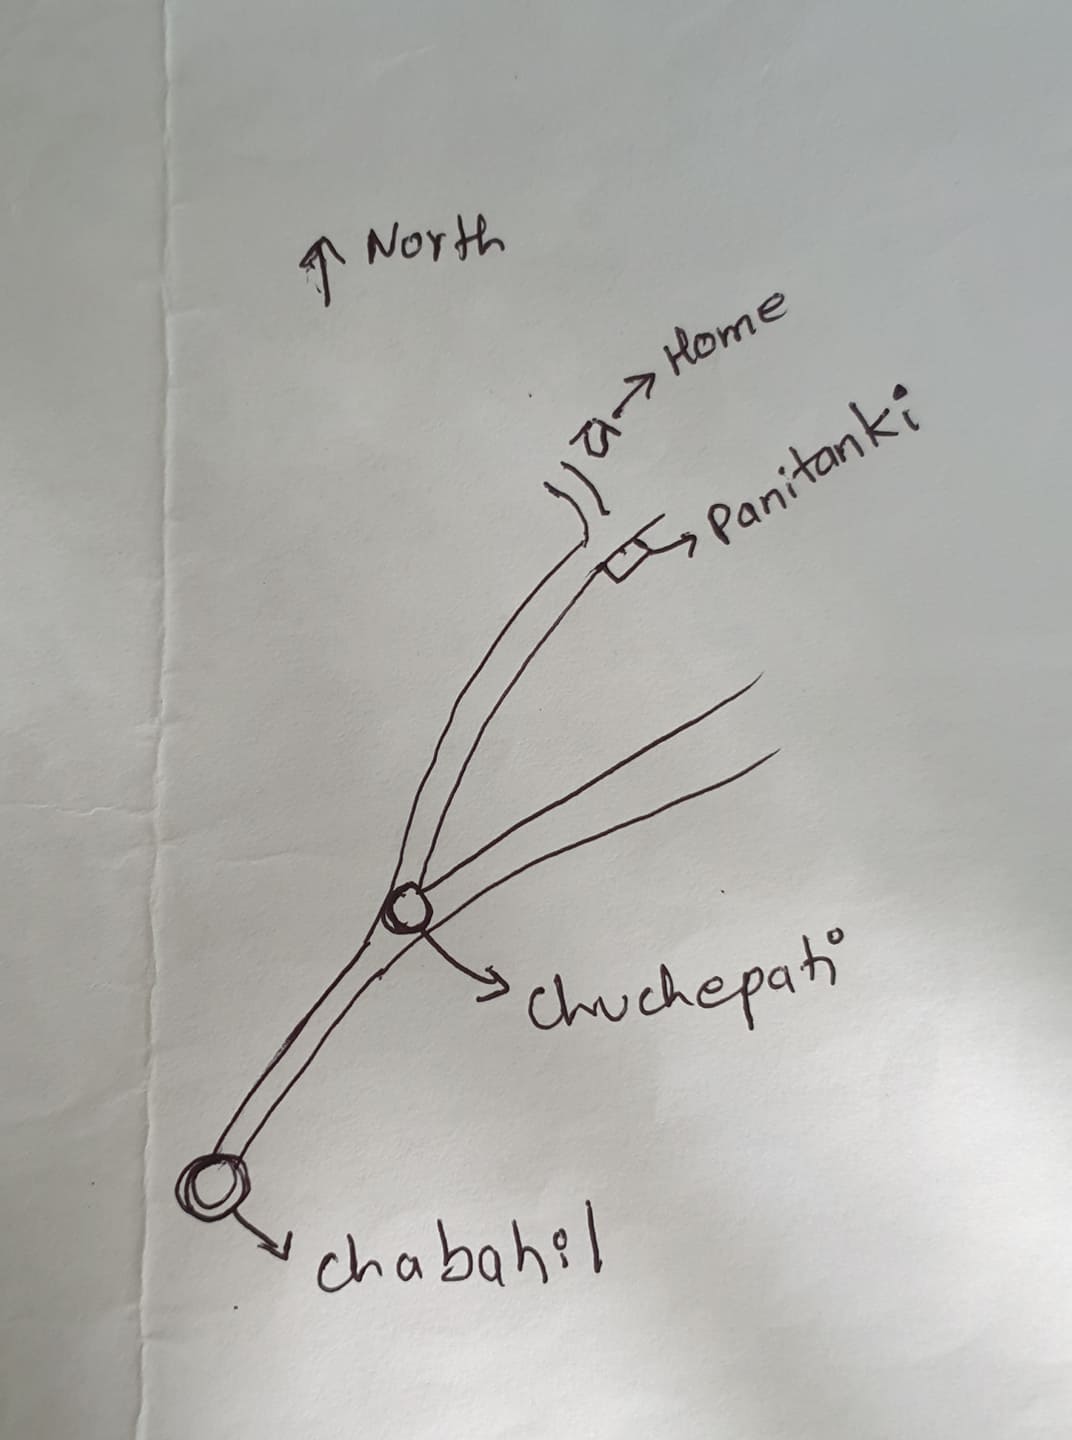 North
Home
Panitanki
Chuchepati
Chabahil